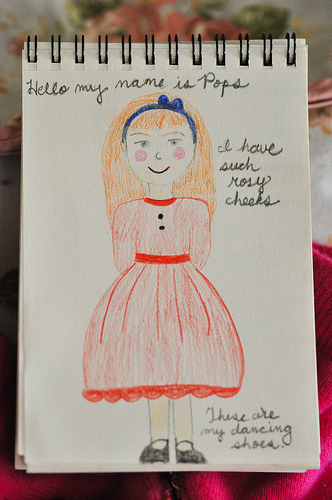 Hello my name is Pops
I have
such
rosy
cheeks
These are
my dancing
shoes.